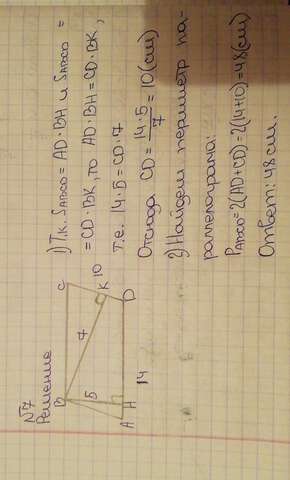 №7
Решение
B
C
5
7
K
10
A
H
D
14
1) Т.к. S_ABCD = AD·BH и S_ABCD =
= CD·BK, то AD·BH = CD·BK,
т.е. 14·5 = CD·7
Отсюда CD = 14·5/7 = 10 (см)
2) Найдем периметр па-
раллелограма:
P_ABCD = 2(AD+CD) = 2(14+10) = 48 (см)
Ответ: 48 см.